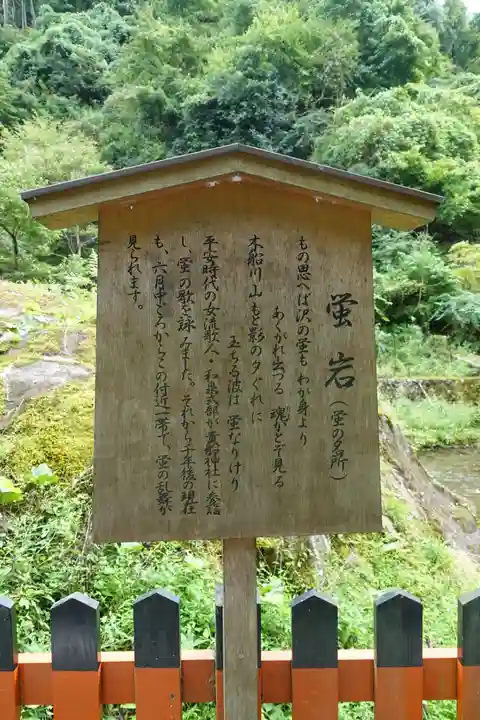 蛍岩（蛍の名所）
もの思へば沢の蛍もわが身より
あくがれ出づる魂かとぞ見る
木船川山も影の夕ぐれに
玉ちる波は蛍なりけり
平安時代の女流歌人・和泉式部が貴船神社に参詣
し、蛍の歌を詠みました。それから千年後の現在
も、六月中ごろからこの付近一帯で、蛍の乱舞が
見られます。